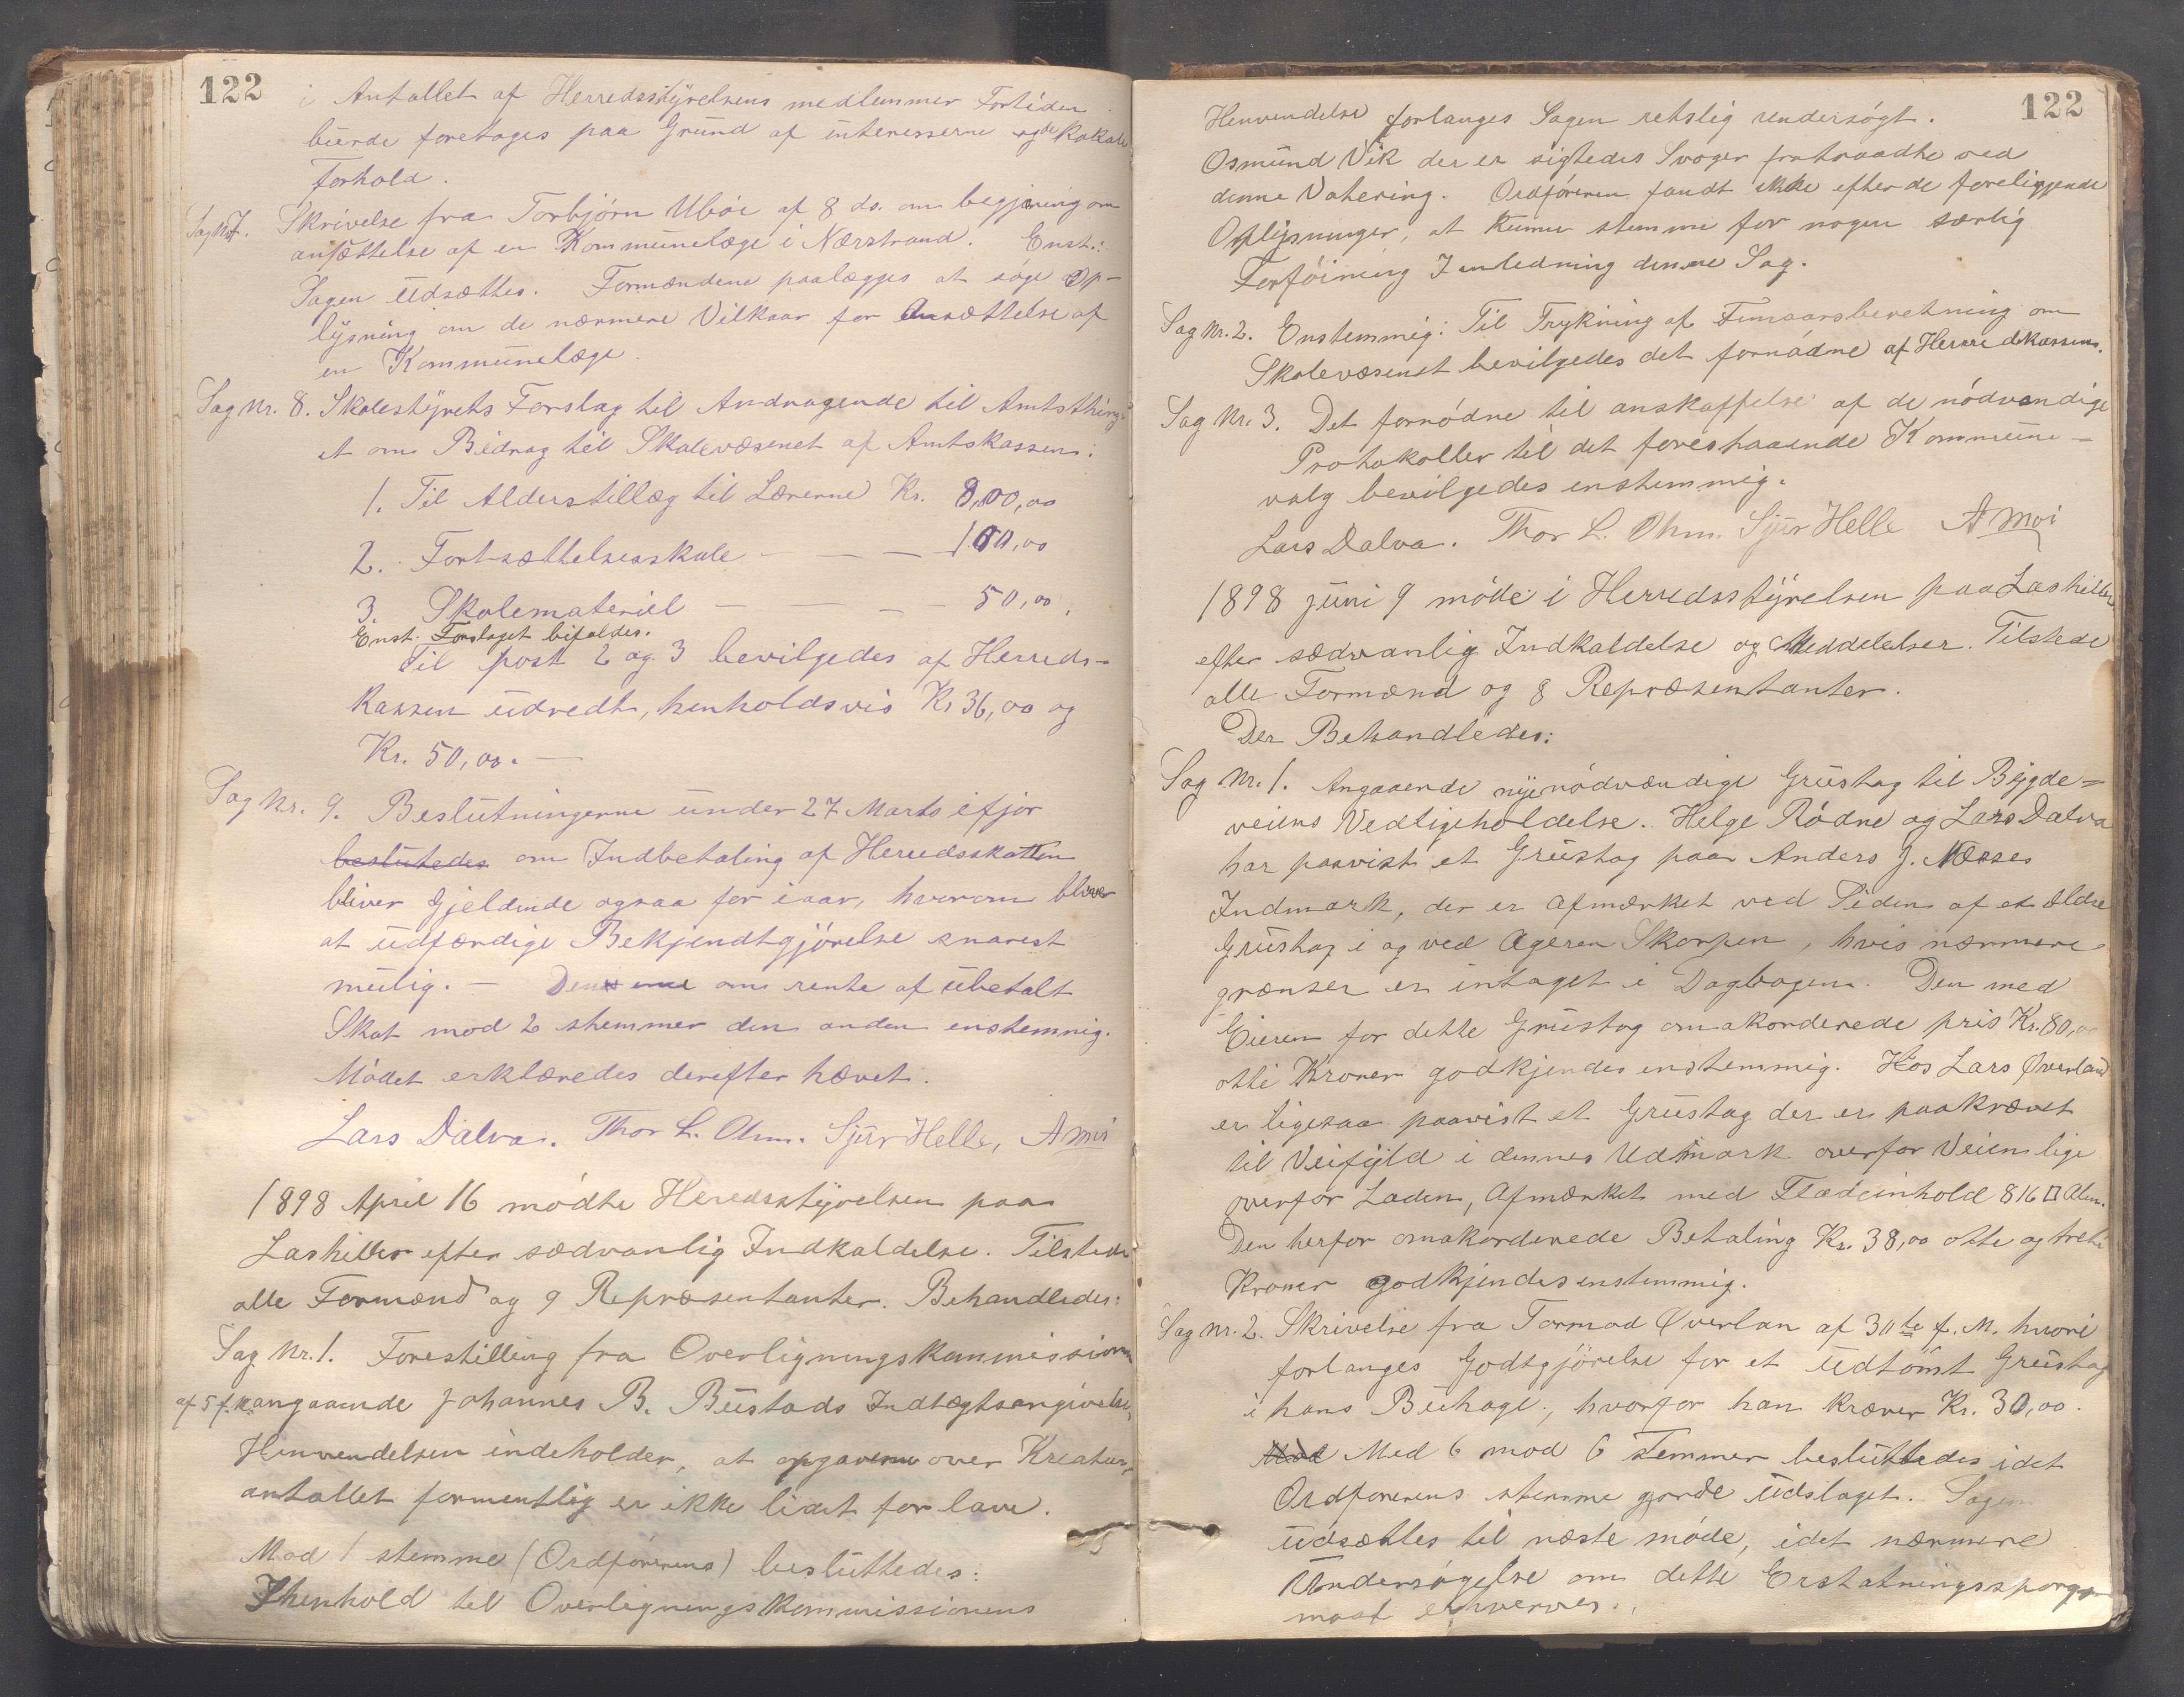 122
i Antallet af Herredsstyrelsens medlemmer Fortiden
burde foretages paa Grund af interesserne og de lokale
Forhold.
Sag No 7. Skrivelse fra Torbjörn Uböe af 8 ds. om begjæring om
ansættelse af en Kommunelæge i Nærstrand. Enst.:
Sagen Udsættes. Formændene paalægges at søge Op-
lysning om de nærmere Vilkaar for Ansættelse af
en Kommunelæge.
Sag Nr. 8. Skolestyrets Forslag til Andragende til Amtsthing-
et om Bidrag til Skolevæsenet af Amtskassen:
1. Til Alderstillæg til Lærerne Kr. 800,00
2. Fortsættelsesskole — — — 100,00
3. Skolemateriel — — — 50,00.
Enst. Forslaget bifaldes.
Til post 2 og 3 bevilgedes af Herreds-
kassen udredt, henholdsvis Kr 36,00 og
Kr. 50,00. —
Sag Nr. 9. Beslutningerne under 27 Marts ifjor
beslutedes om Indbetaling af Herredsskatten
bliver Gjeldende ogsaa for iaar, hvorom bliver
at udfærdige Bekjendtgjörelse snarest
mulig. — Den ene om rente af ubetalt
Skat mod 2 stemmer den anden enstemmig.
Mödet erklæredes derefter hævet.
Lars Dalva. Thor L. Ohm. Sjur Helle, A Moi
1898 April 16 mödte Heredsstyrelsen paa
Lashiller efter sædvanlig Indkaldelse. Tilstede
alle Formænd og 9 Repræsentanter. Behandledes:
Sag Nr. 1. Forestilling fra Overligningskommissionen
af 5 f. M. angaaende Johannes B. Bustads Indtægtsangivelse,
Henvendelsen indeholder, at opgaverne over Kreatur-
antallet formentlig er ikke lidet for lave.
Mod 1 stemme (Ordförerens) besluttedes:
I henhold til Overligningskommissionens
122
Henvendelse forlanges Sagen retslig undersögt.
Osmund Vik der er sigtedes Svoger fratraadte ved
denne Votering. Ordföreren fandt ikke efter de foreliggende
Oplysninger, at kunne stemme for nogen særlig
Forföining I anledning denne Sag.
Sag Nr. 2. Enstemmig: Til Trykning af Femaarsberetning om
Skolevæsenet bevilgedes det fornödne af Herredskassen.
Sag Nr. 3. Det fornödne til anskaffelse af de nödvendige
Protokoller til det forestaaende Kommune-
valg bevilgedes enstemmig.
Lars Dalva. Thor L. Ohm. Sjur Helle A Moi
1898 juni 9 möde i Herredsstyrelsen paa Lashiller
efter sædvanlig Indkaldelse og Meddelelser. Tilstede
alle Formænd og 8 Repræsentanter.
Der Behandledes:
Sag Nr. 1. Angaaende nye nödvændige Grustag til Bygde-
veiens Vedligeholdelse. Helge Rödne og Lars Dalva
har paavist et Grustag paa Anders J. Næsses
Indmark, der er Afmærket ved Siden af et ældre
Grustag i og ved Ageren Skarpen, hvis nærmere
grænser er intaget i Dagbogen. Den med
Eieren for dette Grustag omakorderede pris Kr. 80,00
otti Kroner godkjendes enstemmig. Hos Lars Øverland
er ligesaa paavist et Grustag der er paakrævet
til Veifyld i dennes Udmark overfor Veien lige
overfor Laden, Afmærket med Fladeinhold 816 □ Alen.
Den herfor omakorderede Betaling Kr. 38,00 otte og treti
Kroner godkjendes enstemmig.
Sag Nr. 2. Skrivelse fra Tormod Øverlan af 30te f. M. hvori
forlanges Godtgjörelse for et Udtömt Grustag
i hans Buhage., hvorfor han kræver Kr. 30,00.
Mod Med 6 mod 6 Stemmer besluttedes idet
Ordförerens stemme gjorde Udslaget. Sagen
udsættes til næste möde, idet nærmere
Undersögelse om dette Erstatningsspørgs-
maal erhverves.